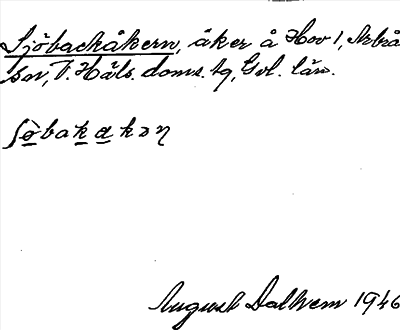 Sjöbackåkern, åker å Hov 1, Arbrå
sn, V. Häls. doms. tg, Gvl. län.
ʃöbakakəη
August Dalhem 1946